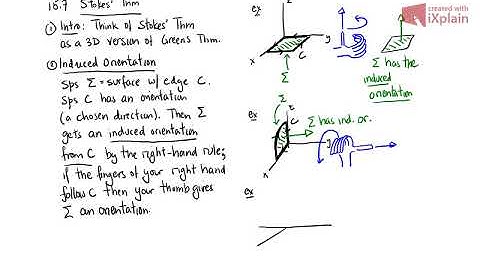 16.7 Stokes' Thm
① Intro: Think of Stokes' Thm
as a 3D version of Green's Thm.
② Induced Orientation
Sps Σ = surface w/ edge C.
Sps C has an orientation
(a chosen direction). Then Σ
gets an induced orientation
from C by the right-hand rule;
if the fingers of your right hand
follow C then your thumb gives
Σ an orientation.
ex
z
y
x
C
Σ
Σ has the
induced
orientation
ex
Σ
z
C
Σ has ind. or.
y
x
ex
created with
iXplain